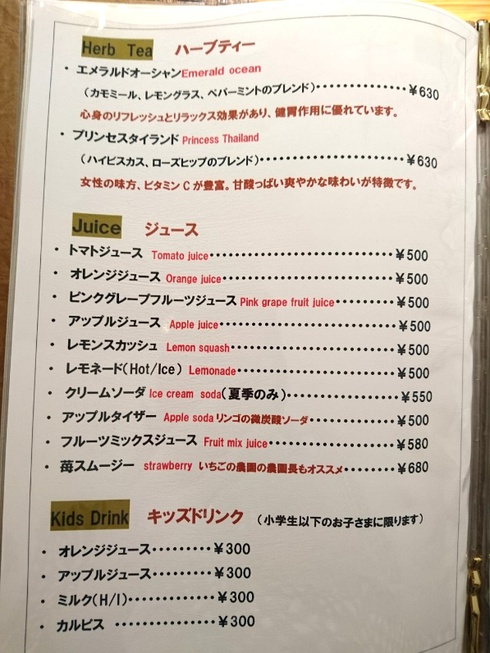 Herb Tea ハーブティー
・エメラルドオーシャン Emerald ocean
(カモミール、レモングラス、ペパーミントのブレンド)・・・・・・・・・・・¥630
心身のリフレッシュとリラックス効果があり、健胃作用に優れています。
・プリンセスタイランド Princess Thailand
(ハイビスカス、ローズヒップのブレンド)・・・・・・・・・・・・・・・・・・¥630
女性の味方、ビタミンCが豊富。甘酸っぱい爽やかな味わいが特徴です。
Juice ジュース
・トマトジュース Tomato juice・・・・・・・・・・・・・・・・・・・・・・¥500
・オレンジジュース Orange juice・・・・・・・・・・・・・・・・・・・・¥500
・ピンクグレープフルーツジュース Pink grape fruit juice・・・・・・・¥500
・アップルジュース Apple juice・・・・・・・・・・・・・・・・・・・・・¥500
・レモンスカッシュ Lemon squash・・・・・・・・・・・・・・・・・・・¥500
・レモネード(Hot/Ice) Lemonade・・・・・・・・・・・・・・・・・・¥500
・クリームソーダ Ice cream soda(夏季のみ)・・・・・・・・・・・・¥550
・アップルタイザー Apple soda リンゴの微炭酸ソーダ・・・・・・・・・¥500
・フルーツミックスジュース Fruit mix juice・・・・・・・・・・・・・・¥580
・苺スムージー strawberry いちごの農園の農園長もオススメ・・・・・・¥680
Kids Drink キッズドリンク (小学生以下のお子さまに限ります)
・オレンジジュース・・・・・・・・¥300
・アップルジュース・・・・・・・・¥300
・ミルク(H/I)・・・・・・・・・・・¥300
・カルピス ・・・・・・・・・・・・¥300